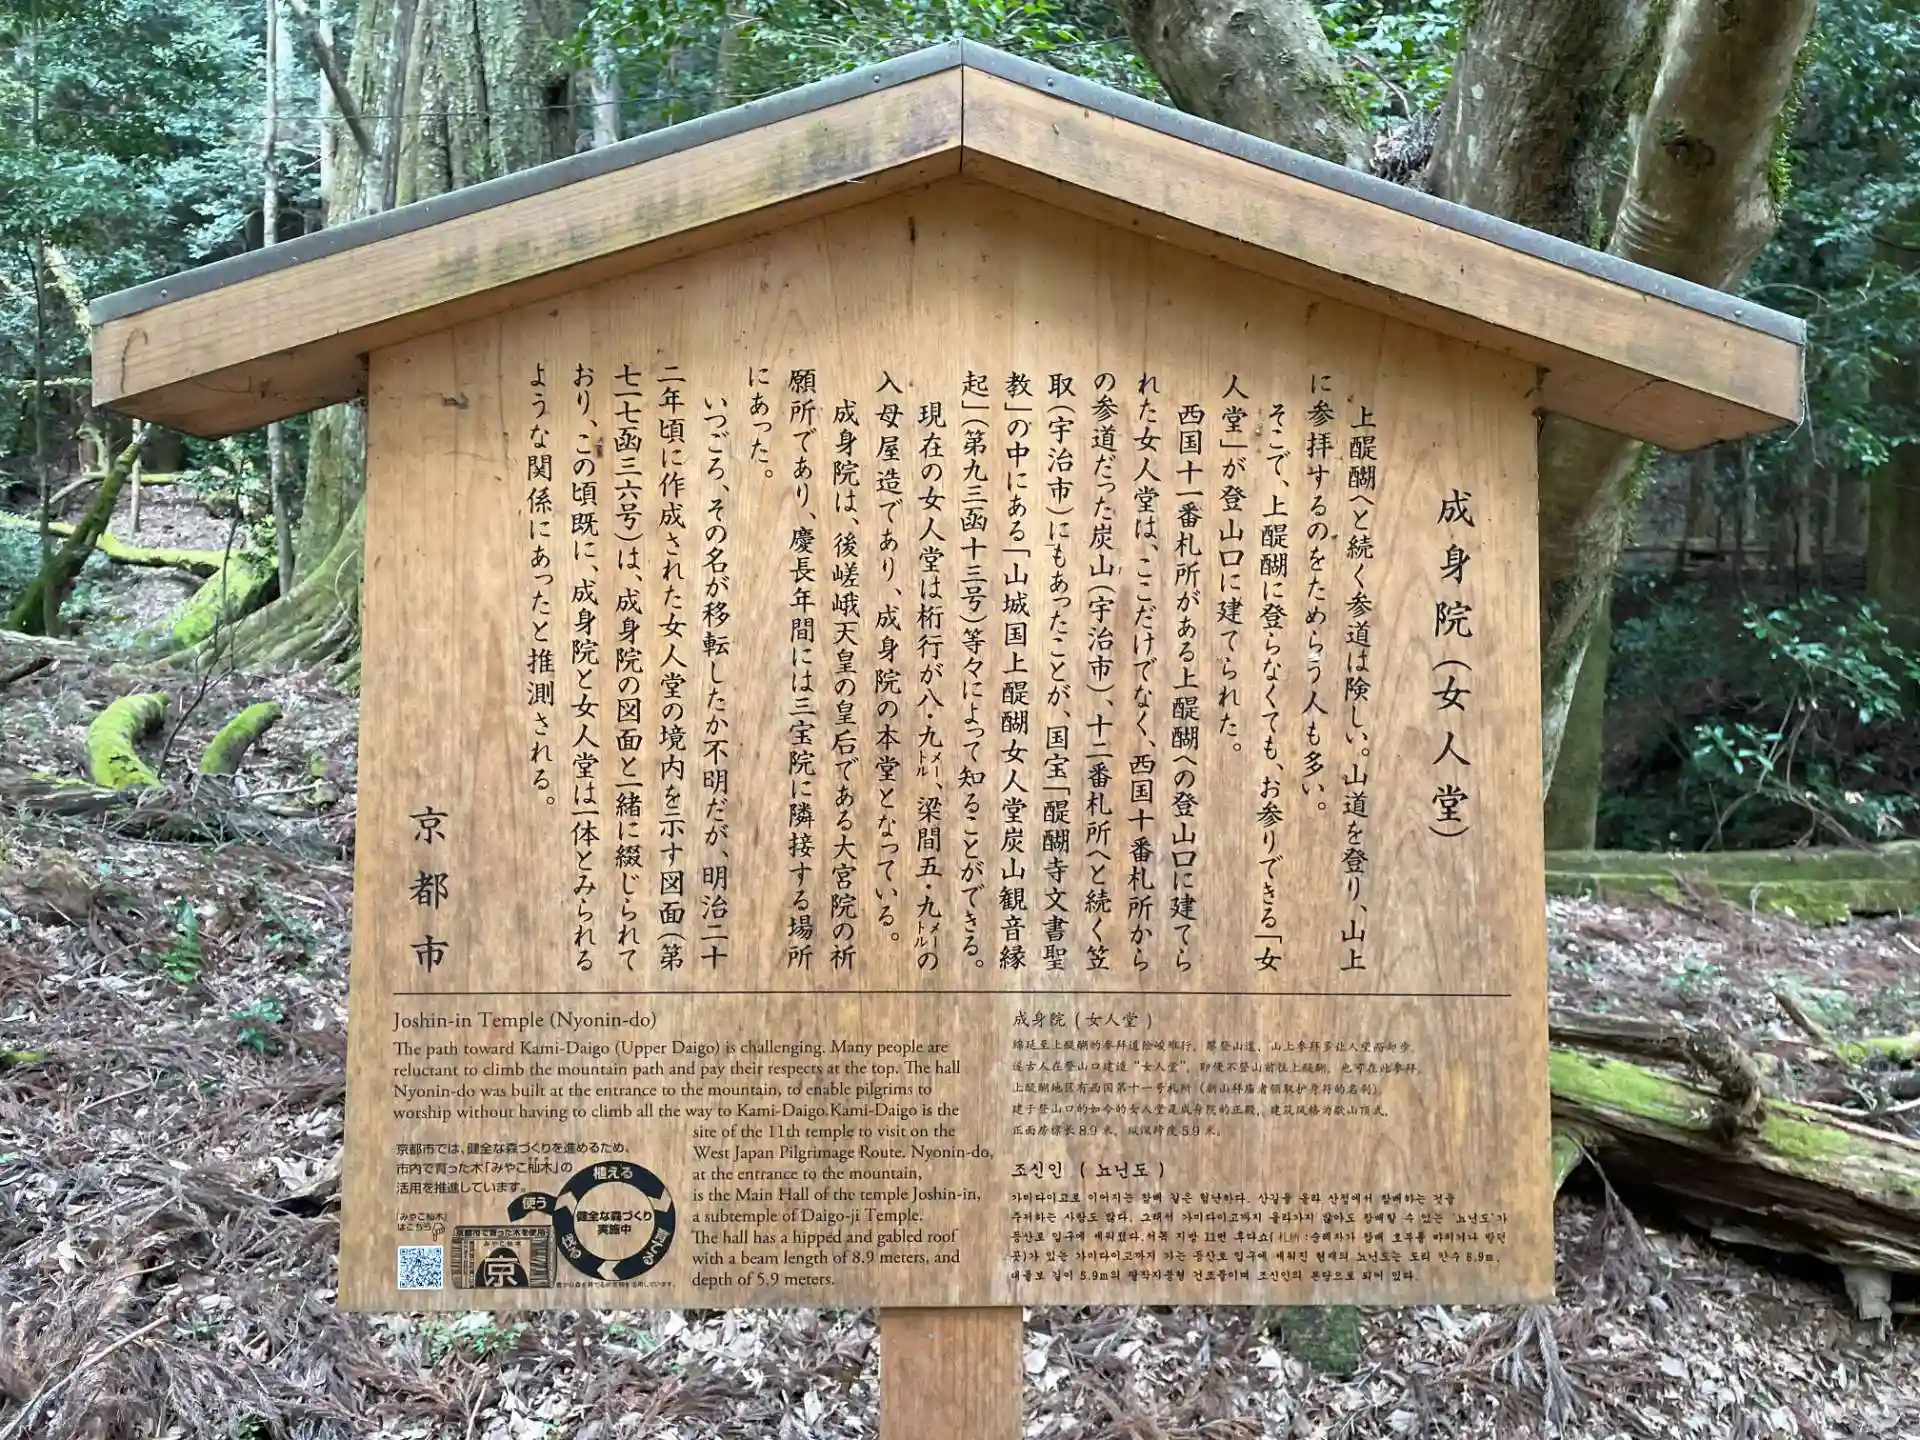 成身院（女人堂）
上醍醐へと続く参道は険しい。山道を登り、山上
に参拝するのをためらう人も多い。
そこで、上醍醐に登らなくても、お参りできる「女
人堂」が登山口に建てられた。
西国十一番札所がある上醍醐への登山口に建てら
れた女人堂は、ここだけでなく、西国十番札所から
の参道だった炭山（宇治市）、十二番札所へと続く笠
取（宇治市）にもあったことが、国宝「醍醐寺文書聖
教」の中にある「山城国上醍醐女人堂炭山観音縁
起」（第九三函十三号）等々によって知ることができる。
現在の女人堂は桁行が八・九メートル、梁間五・九メートルの
入母屋造であり、成身院の本堂となっている。
成身院は、後嵯峨天皇の皇后である大宮院の祈
願所であり、慶長年間には三宝院に隣接する場所
にあった。
いつごろ、その名が移転したか不明だが、明治二十
二年頃に作成された女人堂の境内を示す図面（第
七一七函三六号）は、成身院の図面と一緒に綴じられて
おり、この頃既に、成身院と女人堂は一体とみられる
ような関係にあったと推測される。
京都市
Joshin-in Temple (Nyonin-do)
The path toward Kami-Daigo (Upper Daigo) is challenging. Many people are
reluctant to climb the mountain path and pay their respects at the top. The hall
Nyonin-do was built at the entrance to the mountain, to enable pilgrims to
worship without having to climb all the way to Kami-Daigo.Kami-Daigo is the
site of the 11th temple to visit on the
West Japan Pilgrimage Route. Nyonin-do,
at the entrance to the mountain,
is the Main Hall of the temple Joshin-in,
a subtemple of Daigo-ji Temple.
The hall has a hipped and gabled roof
with a beam length of 8.9 meters, and
depth of 5.9 meters.
京都市では、健全な森づくりを進めるため、
市内で育った木「みやこ杣木」の
活用を推進しています。
「みやこ杣木」
はこちら
植える
育てる
使う
健全な森づくり
実施中
京都市で育った木を使用
みやこ杣木
京
成身院（女人堂）
绵延至上醍醐的参拜道险峻难行。攀登山道，山上参拜多让人望而却步。
遂古人在登山口建造“女人堂”，即便不登山前往上醍醐，也可在此参拜。
上醍醐地区有西国第十一号札所（朝山拜庙者领取护身符的名刹）。
建于登山口的如今的女人堂是成身院的正殿，建筑风格为歇山顶式，
正面房檩长8.9米，纵深跨度5.9米。
조신인 ( 뇨닌도 )
가미다이고로 이어지는 참배 길은 험난하다. 산길을 올라 산정에서 참배하는 것을
주저하는 사람도 많다. 그래서 가미다이고까지 올라가지 않아도 참배할 수 있는 '뇨닌도'가
등산로 입구에 세워졌다.서쪽 지방 11번 후다쇼(札所:순례자가 참배 호부를 바치거나 받던
곳)가 있는 가미다이고까지 가는 등산로 입구에 세워진 현재의 뇨닌도는 도리 칸수 8.9m,
대들보 길이 5.9m의 팔작지붕형 건조물이며 조신인의 본당으로 되어 있다.